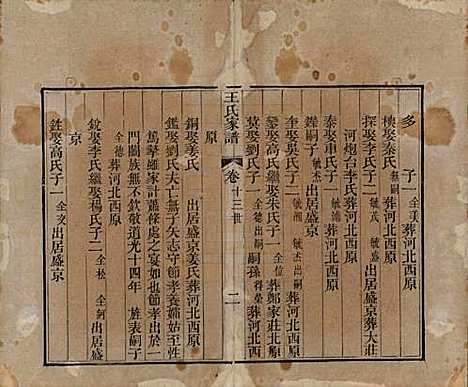 多　子一全美葬河北西原
模娶秦氏無嗣葬河北西原
探娶李氏子二敏茂敏慰出居盛京葬大莊
河炮台李氏葬河北西原
泰娶車氏子一敏浦葬河北西原
鏵嗣子敏杰出嗣葬河北西原
奎娶吳氏子二敏湘敏杰出嗣葬河北西原
蓁娶高氏繼娶朱氏子一全位葬鄭家莊北原
蓂娶劉氏子一全德出嗣嗣孫得榮葬河北西
王氏家譜　卷十三世　二
原
銅娶姜氏　出居盛京姜氏葬河北西原
鑑娶劉氏夫亡無子矢志守節孝養孀姑至性
篤摯雖家計蕭條處之宴如也守節孝於一
門闔族無不欽敬道光十四年　旌表嗣子
全德葬河北西原
銳娶李氏繼娶楊氏子二全松全舸出居盛
京
銼娶高氏子一全亥出居盛京